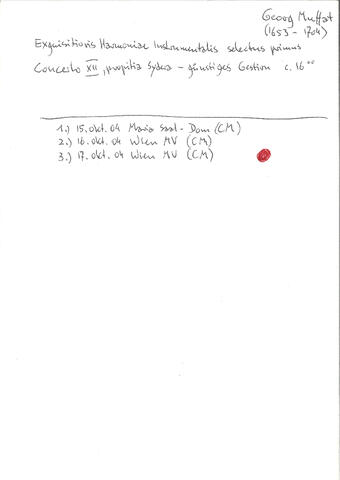 Georg Muffat
(1653 - 1704)
Exquisitioris Harmoniae Instrumentalis selectus primus
Concerto XII, propitia Sydera - günstiges Gestirn c. 16'00
1.) 15. Okt. 04 Maria Saal - Dom (CM)
2.) 16. Okt. 04 Wien MV (CM)
3.) 17. Okt. 04 Wien MV (CM)